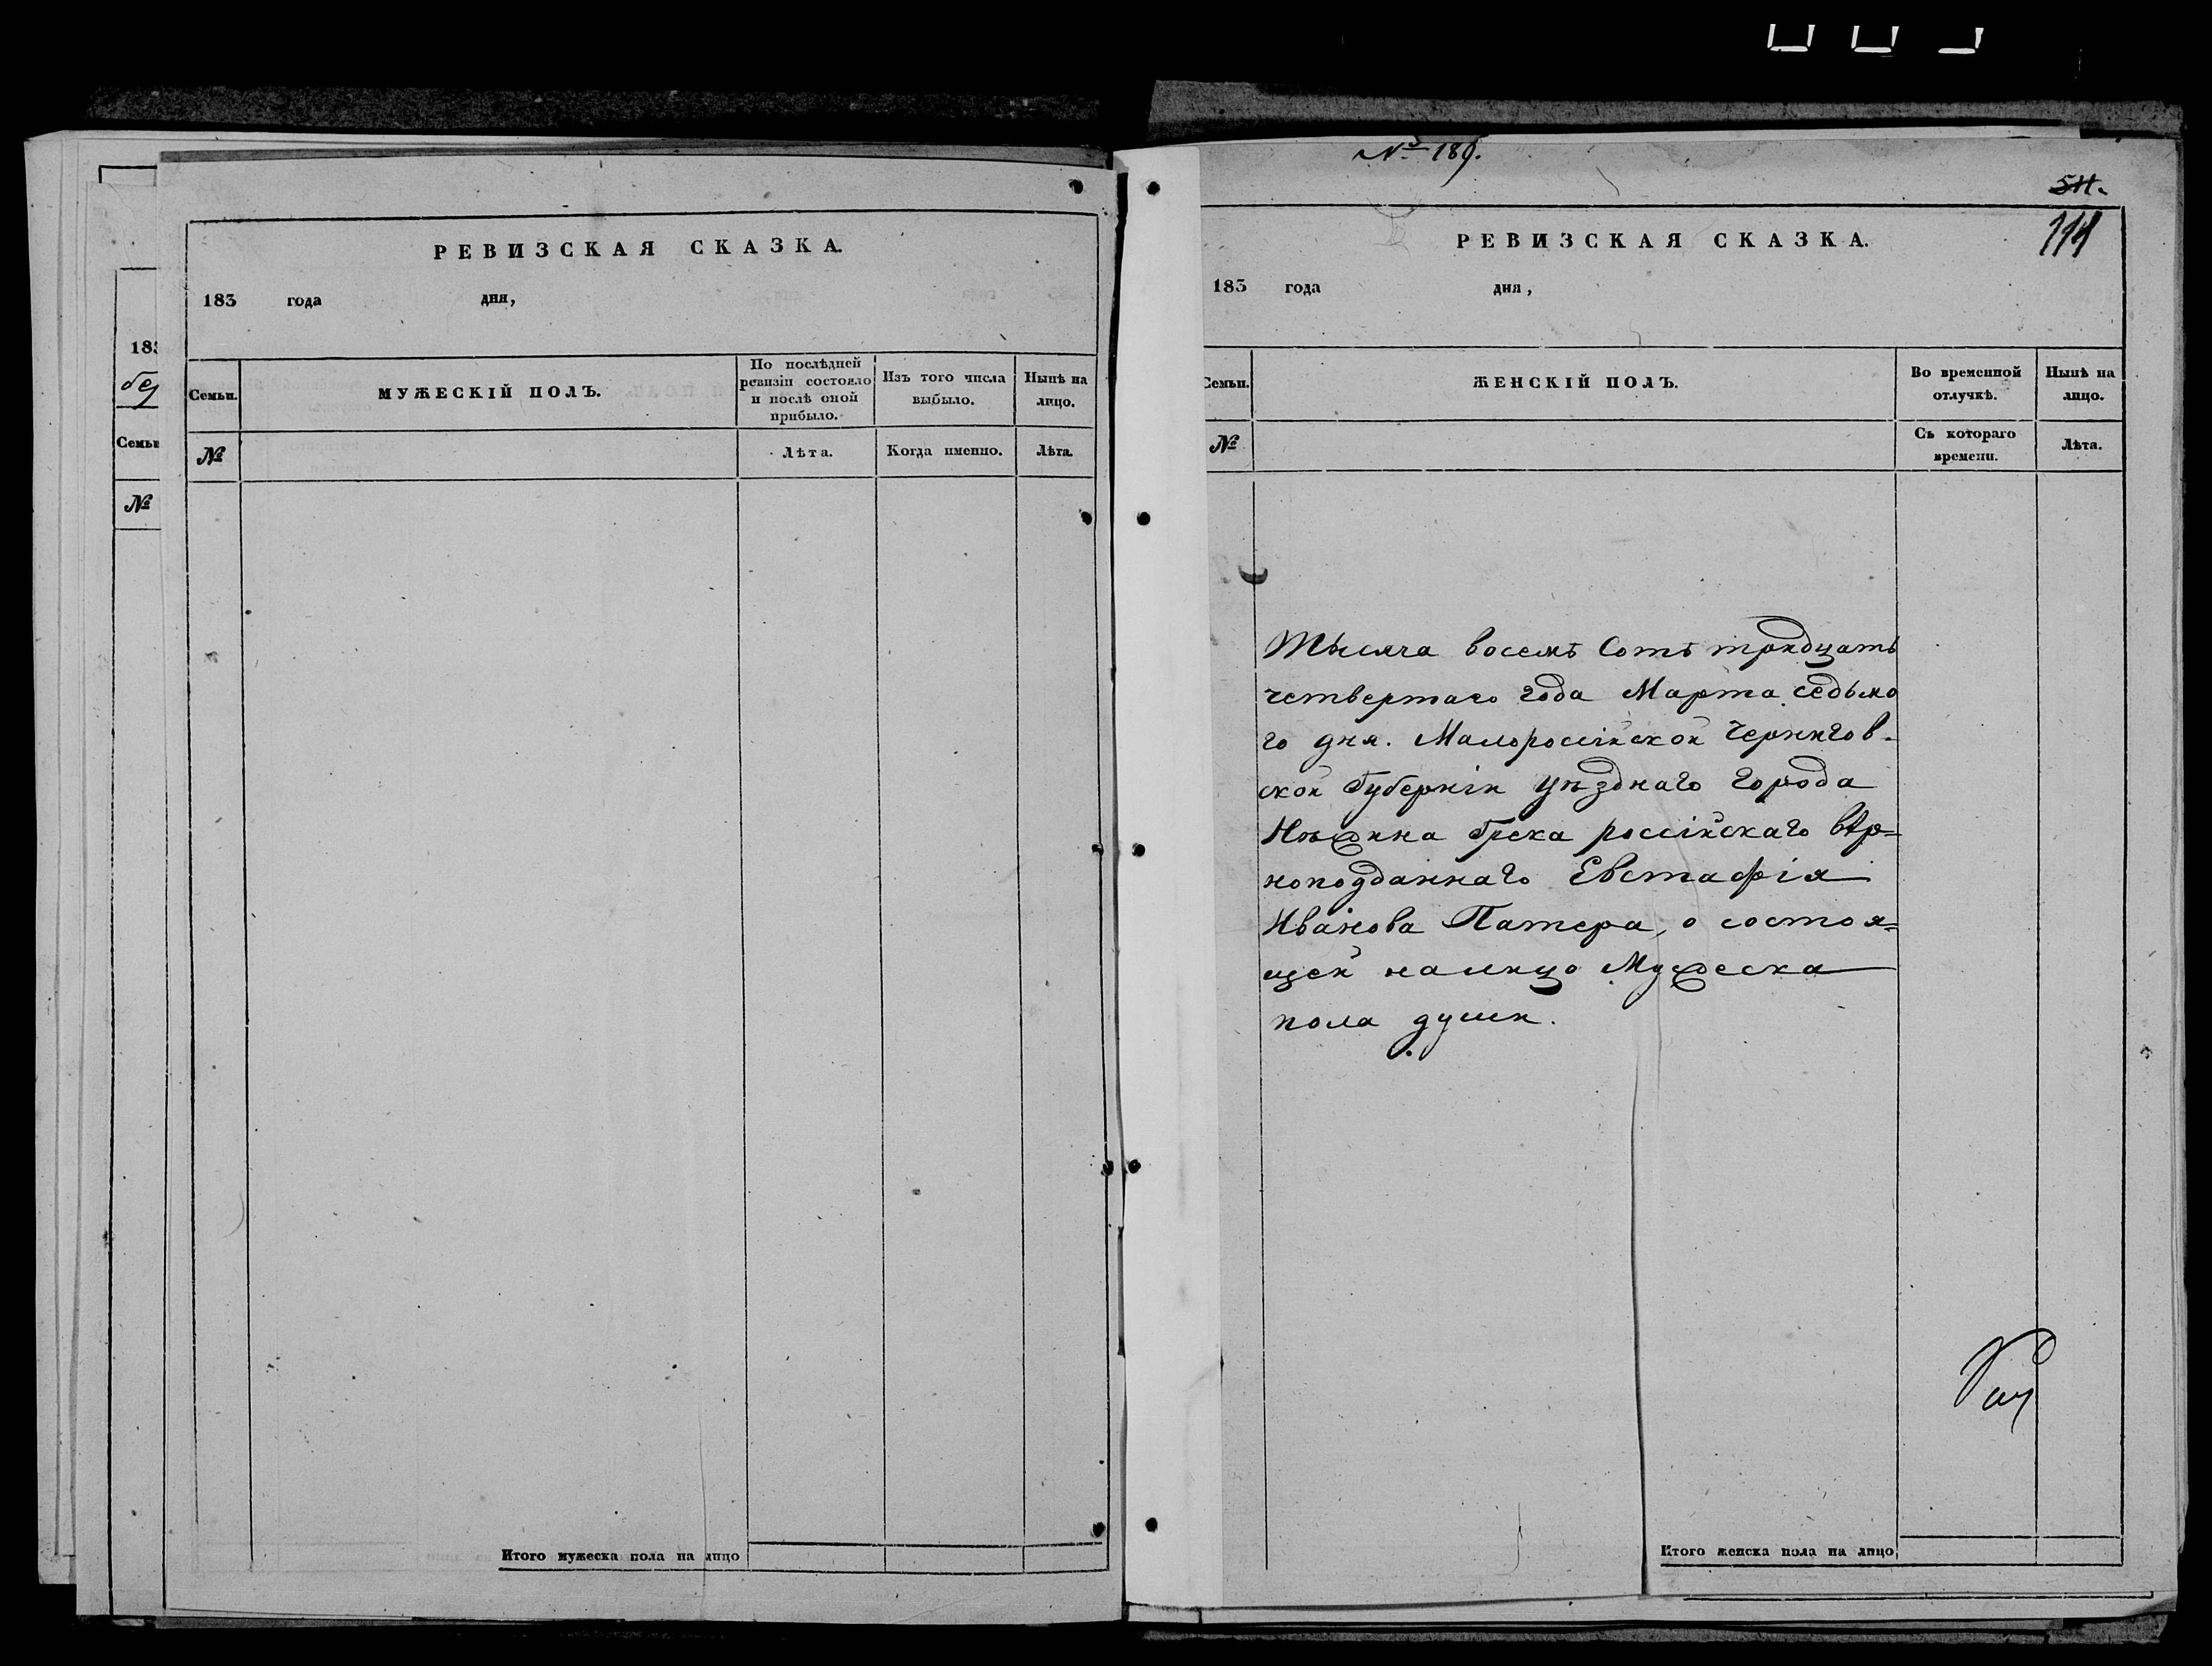 РЕВИЗСКАЯ СКАЗКА.
183 года дня,
Семьи.
МУЖЕСКІЙ ПОЛЪ.
По послѣдней
ревизіи состояло
и послѣ оной
прибыло.
Изъ того числа
выбыло.
Нынѣ на
лицо.
№
Лѣта.
Когда именно.
Лѣта.
Итого мужеска пола на лицо
183
Семьи
№
№ 189.
РЕВИЗСКАЯ СКАЗКА.
183 года дня,
Семьи.
ЖЕНСКІЙ ПОЛЪ.
Во временной
отлучкѣ.
Нынѣ на
лицо.
№
Съ котораго
времени.
Лѣта.
Тысяча восемъ Сотъ тридцать
четвертаго года Марта седьмо
го дня. Малоросійской Чернигов-
ской Губерніи уѣзднаго города
Нѣжина Грека россійскаго вѣр=
ноподданнаго Евстафія
Иванова Патера, о состоя=
щей налицо Мужеска
пола души.
Итого женска пола на лицо